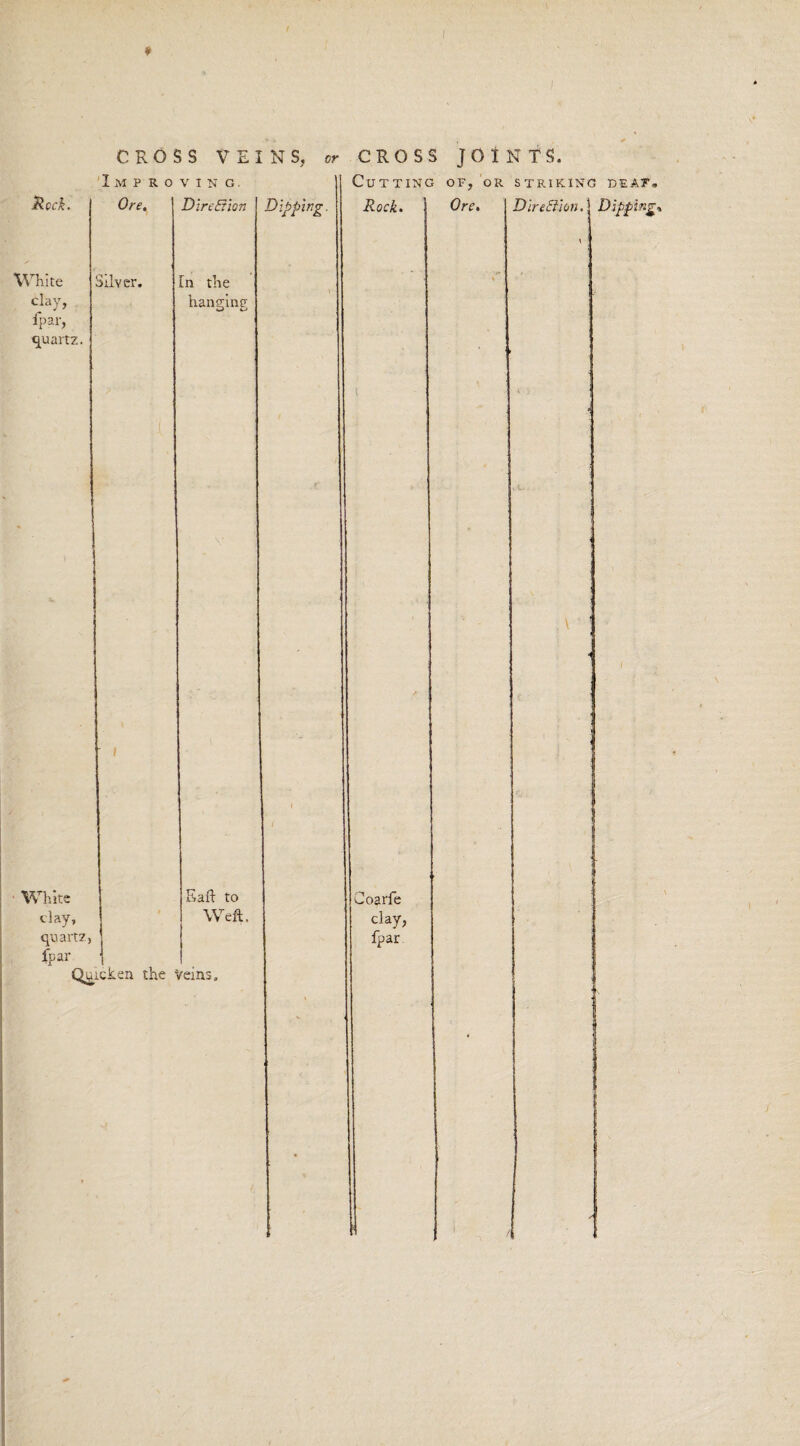 CROSS VEINS, or CROSS JOINTS.
IMPROVING. CUTTING OF, OR STRIKING DEAF.
Rock. Ore. Direction Dipping. Rock. Ore. Direction. Dipping.
White Silver. In the
clay, hanging
ſpar,
quartz.
White Eaſt to Coarſe
clay, Weſt. clay,
quartz, ſpar
ſpar
Quicken the Veins.